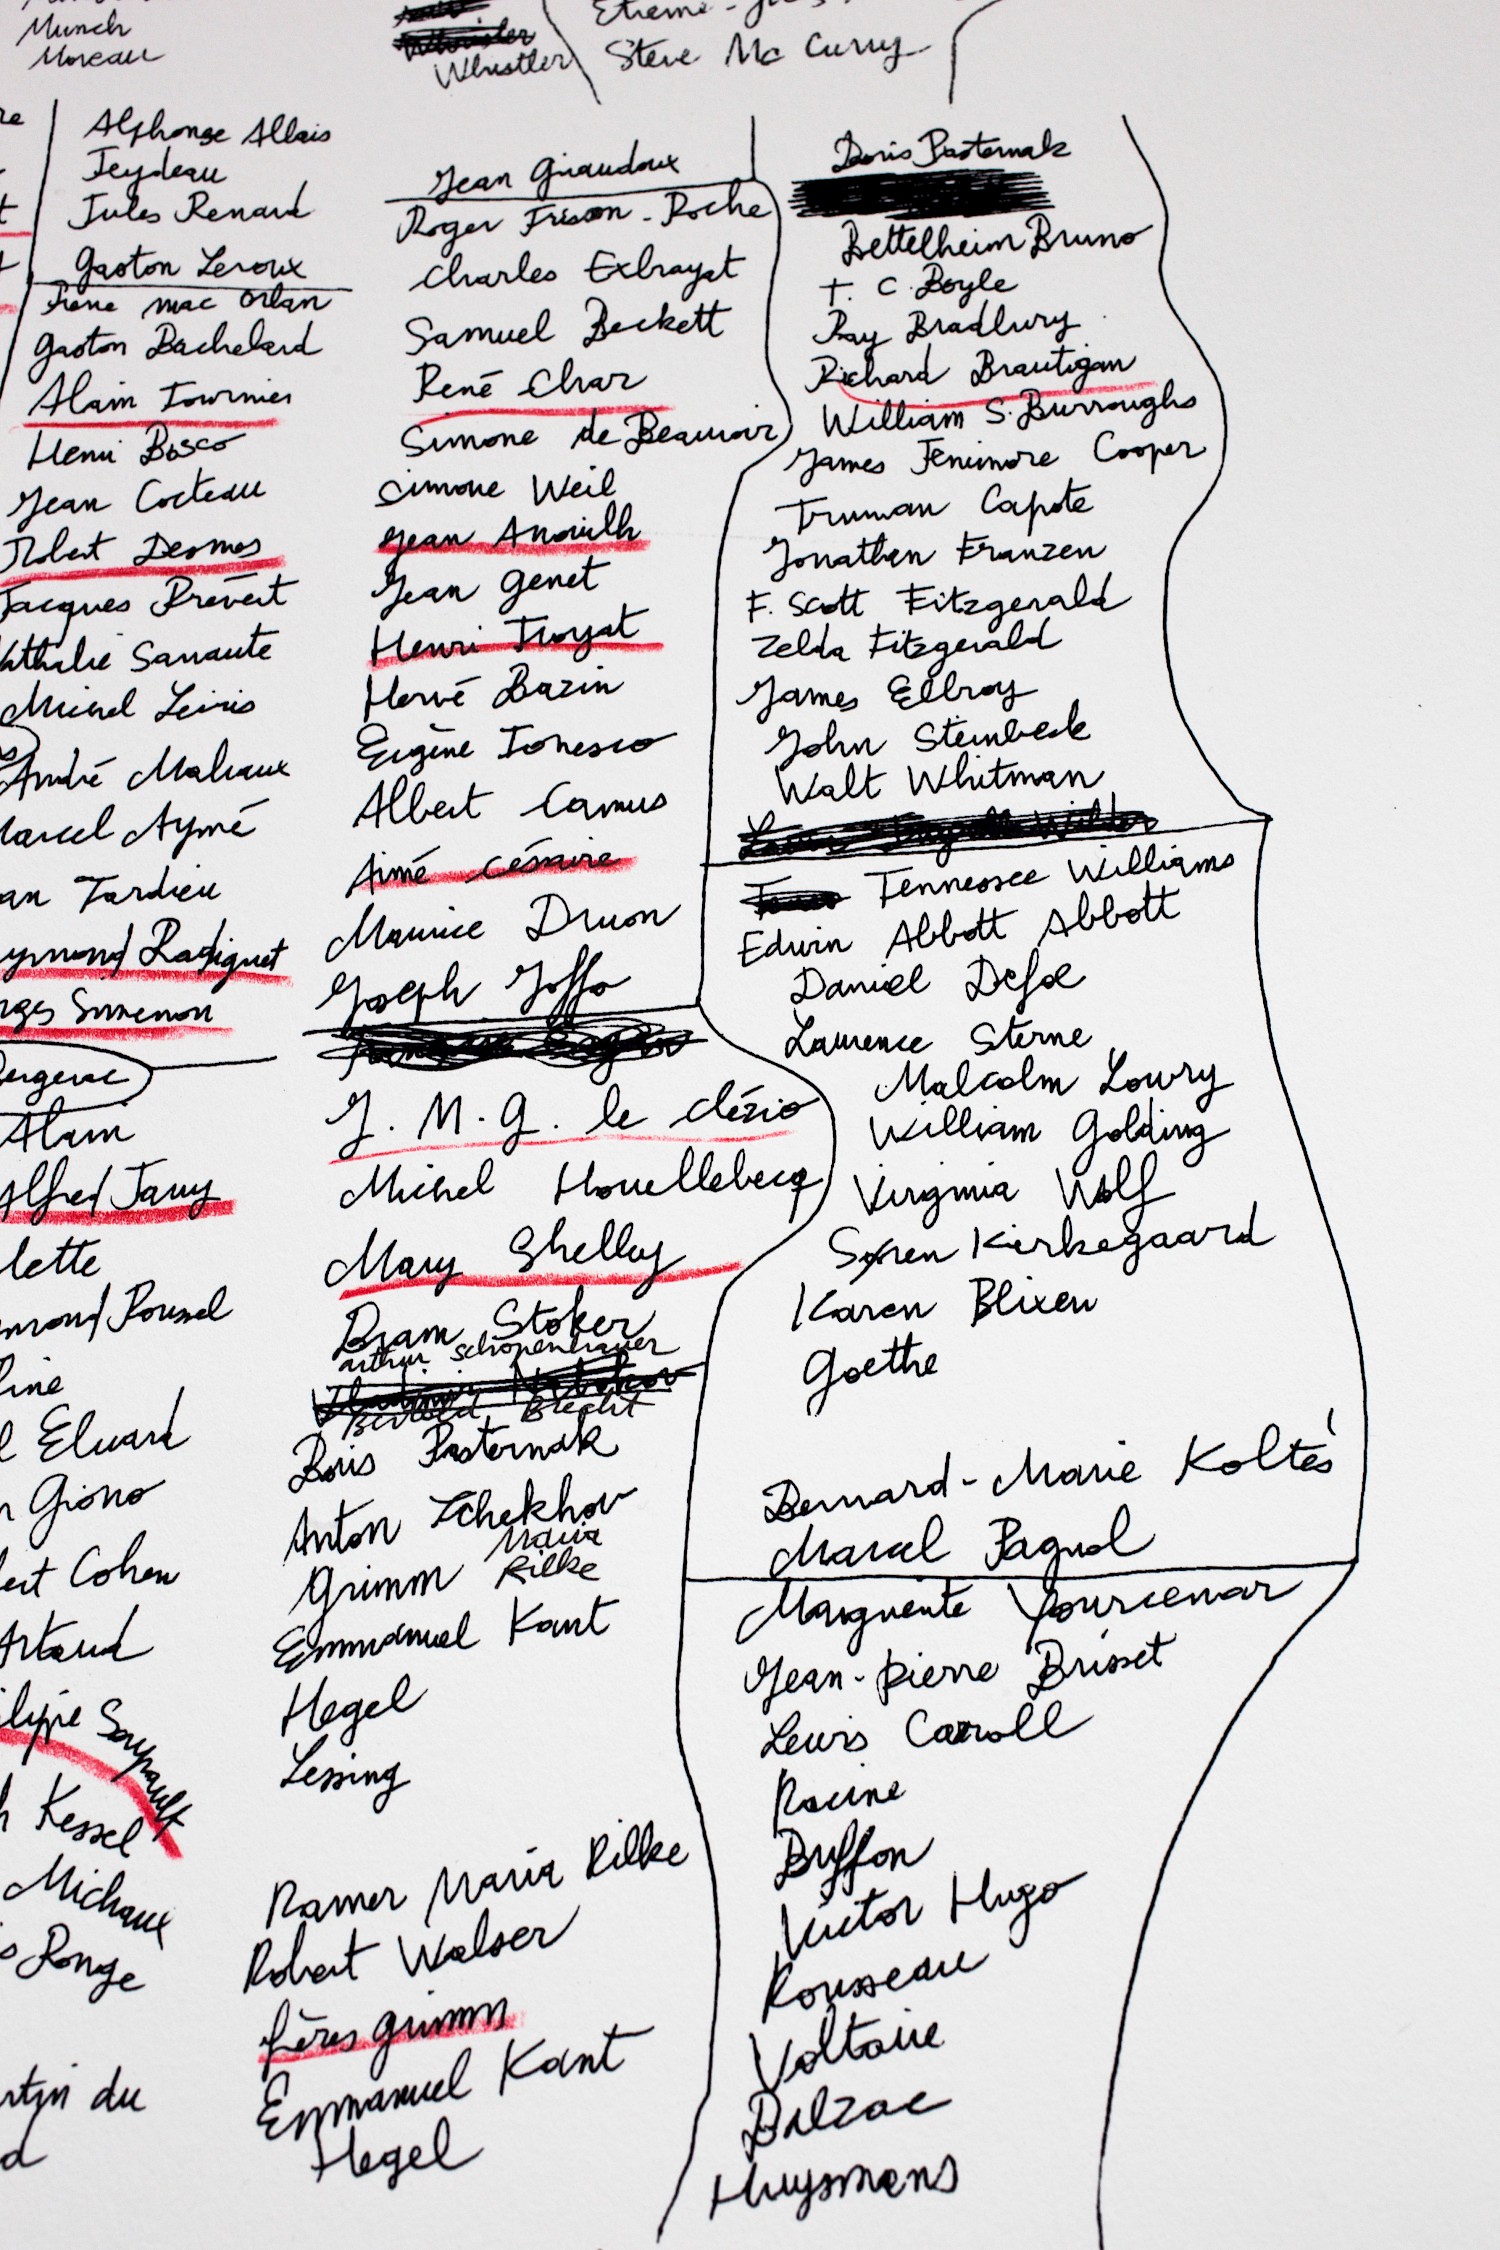 Munch
Moreau
Whistler
Steve Mc Curry
Alphonse Allais
Feydeau
Jules Renard
Gaston Leroux
mac orlan
Gaston Bachelard
Alain Fournier
Henri Bosco
Jean Cocteau
Robert Desnos
Jacques Prévert
Nathalie Sarraute
Michel Leiris
André Malraux
Marcel Aymé
an Tardieu
ymond Radiguet
rges Simenon
Bergerac
Alain
Alfred Jarry
lette
mond Roussel
line
l Eluard
n Giono
ert Cohen
Artaud
ilippe Soupault
h Kessel
Michaux
s Ponge
rtin du
d
Jean Giraudoux
Roger Frison-Roche
Charles Exbrayat
Samuel Beckett
René Char
Simone de Beauvoir
Simone Weil
Jean Anouilh
Jean Genet
Henri Troyat
Hervé Bazin
Eugène Ionesco
Albert Camus
Aimé Césaire
Maurice Druon
Joseph Joffo
J. M. G. le clézio
Michel Houellebecq
Mary Shelley
Bram Stoker
arthur schopenhauer
Vladimir Nabokov
Bertold Brecht
Boris Pasternak
Anton Tchekhov
Maria
Grimm Rilke
Emmanuel Kant
Hegel
Lessing
Rainer Maria Rilke
Robert Walser
frères grimm
Emmanuel Kant
Hegel
Boris Pasternak
Bettelheim Bruno
T. C. Boyle
Ray Bradbury
Richard Brautigan
William S. Burroughs
James Fenimore Cooper
Truman Capote
Jonathan Franzen
F. Scott Fitzgerald
Zelda Fitzgerald
James Ellroy
John Steinbeck
Walt Whitman
Laura Ingalls Wilder
Tennessee Williams
Edwin Abbott Abbott
Daniel Defoe
Laurence Sterne
Malcolm Lowry
William Golding
Virginia Wolf
Søren Kierkegaard
Karen Blixen
Goethe
Bernard-Marie Koltés
Marcel Pagnol
Marguerite Yourcenar
Jean-pierre Brisset
Lewis Carroll
Racine
Buffon
Victor Hugo
Rousseau
Voltaire
Balzac
Huysmans